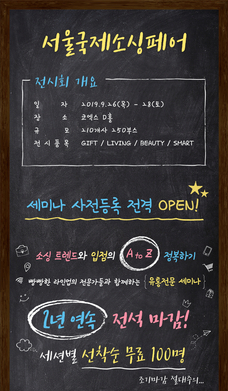 서울국제소싱페어
전시회 개요
일 자 2019.9.26(목) - 28(토)
장 소 코엑스 D홀
규 모 210개사 250부스
전 시 품 목 GIFT / LIVING / BEAUTY / SMART
세미나 사전등록 전격 OPEN!
소싱 트렌드와 입점의 A to Z 정복하기
빵빵한 라인업의 전문가들과 함께하는 유통전문 세미나
2년 연속 전석 마감!
세션별 선착순 무료 100명
조기마감 절대주의...